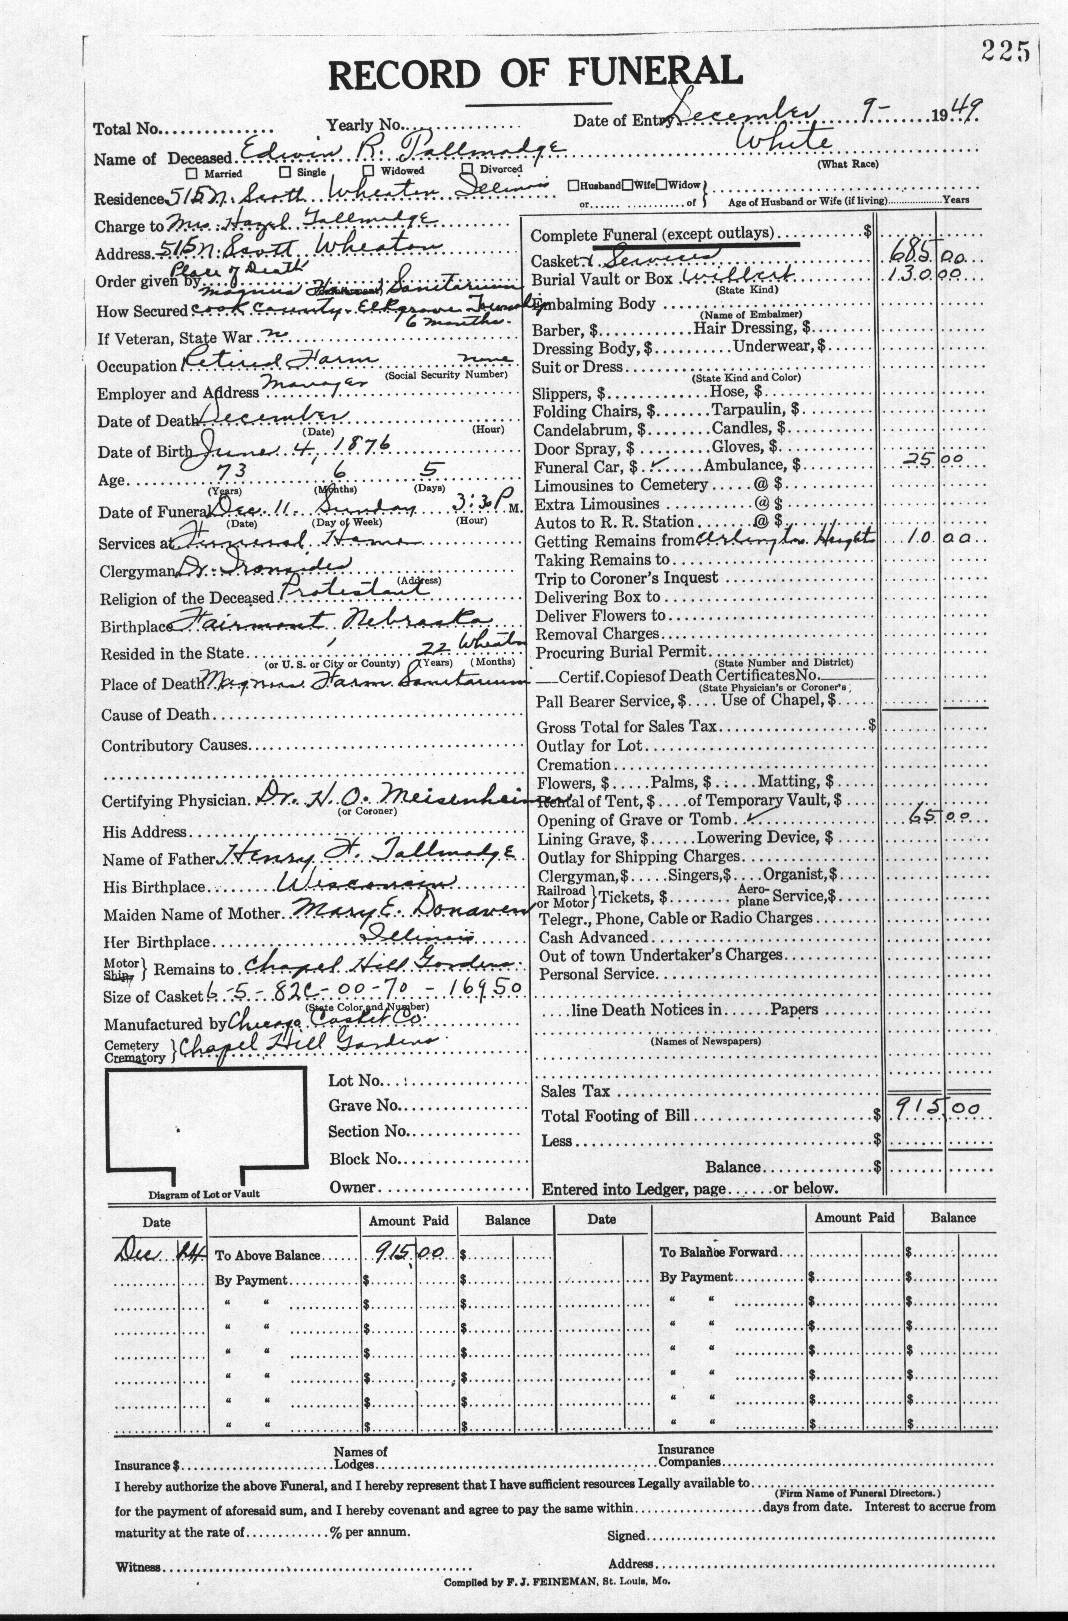 225
RECORD OF FUNERAL
Total No. Yearly No. Date of Entry December 9- 1949
Name of Deceased Edwin R. Tallmadge White
(What Race)
☐ Married ☐ Single ☐ Widowed ☐ Divorced
Residence 515 N. Scott Wheaton Illinois ☐Husband☐Wife☐Widow}
or of Age of Husband or Wife (if living) Years
Charge to Mrs. Hazel Tallmadge
Address 515 N. Scott Wheaton
Place of Death
Order given by Magnus Farm Sanitarium
How Secured Cook County - Elkgrove Township
6 months.
If Veteran, State War no
Occupation Retired Farm none
(Social Security Number)
Employer and Address Manager
Date of Death December
(Date) (Hour)
Date of Birth June 4, 1876
Age 73 6 5
(Years) (Months) (Days)
Date of Funeral Dec. 11. Sunday 3:30 P M.
(Date) (Day of Week) (Hour)
Services at Funeral Home
Clergyman Dr. Ironsides
(Address)
Religion of the Deceased Protestant
Birthplace Fairmont, Nebraska
Resided in the State 22 Wheaton
(or U. S. or City or County) (Years) (Months)
Place of Death Magnus Farm Sanitarium
Cause of Death
Contributory Causes
Certifying Physician Dr. H. O. Meisenheimer
(or Coroner)
His Address
Name of Father Henry H. Tallmadge
His Birthplace Wisconsin
Maiden Name of Mother Mary E. Donaven
Her Birthplace Illinois
Motor Ship } Remains to Chapel Hill Gardens.
Size of Casket 6-5-82C-00-70 - 169.50
(State Color and Number)
Manufactured by Chicago Casket Co.
Cemetery Crematory } Chapel Hill Gardens
Diagram of Lot or Vault
Lot No.
Grave No.
Section No.
Block No.
Owner
Complete Funeral (except outlays) $
Casket & Services 685 00
Burial Vault or Box Wilbert 130 00
(State Kind)
Embalming Body
(Name of Embalmer)
Barber, $ Hair Dressing, $
Dressing Body, $ Underwear, $
Suit or Dress
(State Kind and Color)
Slippers, $ Hose, $
Folding Chairs, $ Tarpaulin, $
Candelabrum, $ Candles, $
Door Spray, $ Gloves, $
Funeral Car, $ ✓ Ambulance, $ 25 00
Limousines to Cemetery @ $
Extra Limousines @ $
Autos to R. R. Station @ $
Getting Remains from Arlington Heights 10 00
Taking Remains to
Trip to Coroner's Inquest
Delivering Box to
Deliver Flowers to
Removal Charges
Procuring Burial Permit
(State Number and District)
Certif. Copies of Death Certificates No.
(State Physician's or Coroner's)
Pall Bearer Service, $ Use of Chapel, $
Gross Total for Sales Tax $
Outlay for Lot
Cremation
Flowers, $ Palms, $ Matting, $
Rental of Tent, $ of Temporary Vault, $
Opening of Grave or Tomb ✓ 65 00
Lining Grave, $ Lowering Device, $
Outlay for Shipping Charges
Clergyman, $ Singers, $ Organist, $
Railroad or Motor } Tickets, $ Aero-plane Service, $
Telegr., Phone, Cable or Radio Charges
Cash Advanced
Out of town Undertaker's Charges
Personal Service
line Death Notices in Papers
(Names of Newspapers)
Sales Tax
Total Footing of Bill $ 915 00
Less $
Balance $
Entered into Ledger, page or below.
Date Amount Paid Balance Date Amount Paid Balance
Dec 24 To Above Balance 915 00 $ To Balance Forward $
By Payment $ $ By Payment $ $
" " $ $ " " $ $
" " $ $ " " $ $
" " $ $ " " $ $
" " $ $ " " $ $
" " $ $ " " $ $
" " $ $ " " $ $
Insurance $ Names of Lodges Insurance Companies
I hereby authorize the above Funeral, and I hereby represent that I have sufficient resources Legally available to
(Firm Name of Funeral Directors.)
for the payment of aforesaid sum, and I hereby covenant and agree to pay the same within days from date. Interest to accrue from
maturity at the rate of % per annum. Signed
Witness Address
Compiled by F. J. FEINEMAN, St. Louis, Mo.